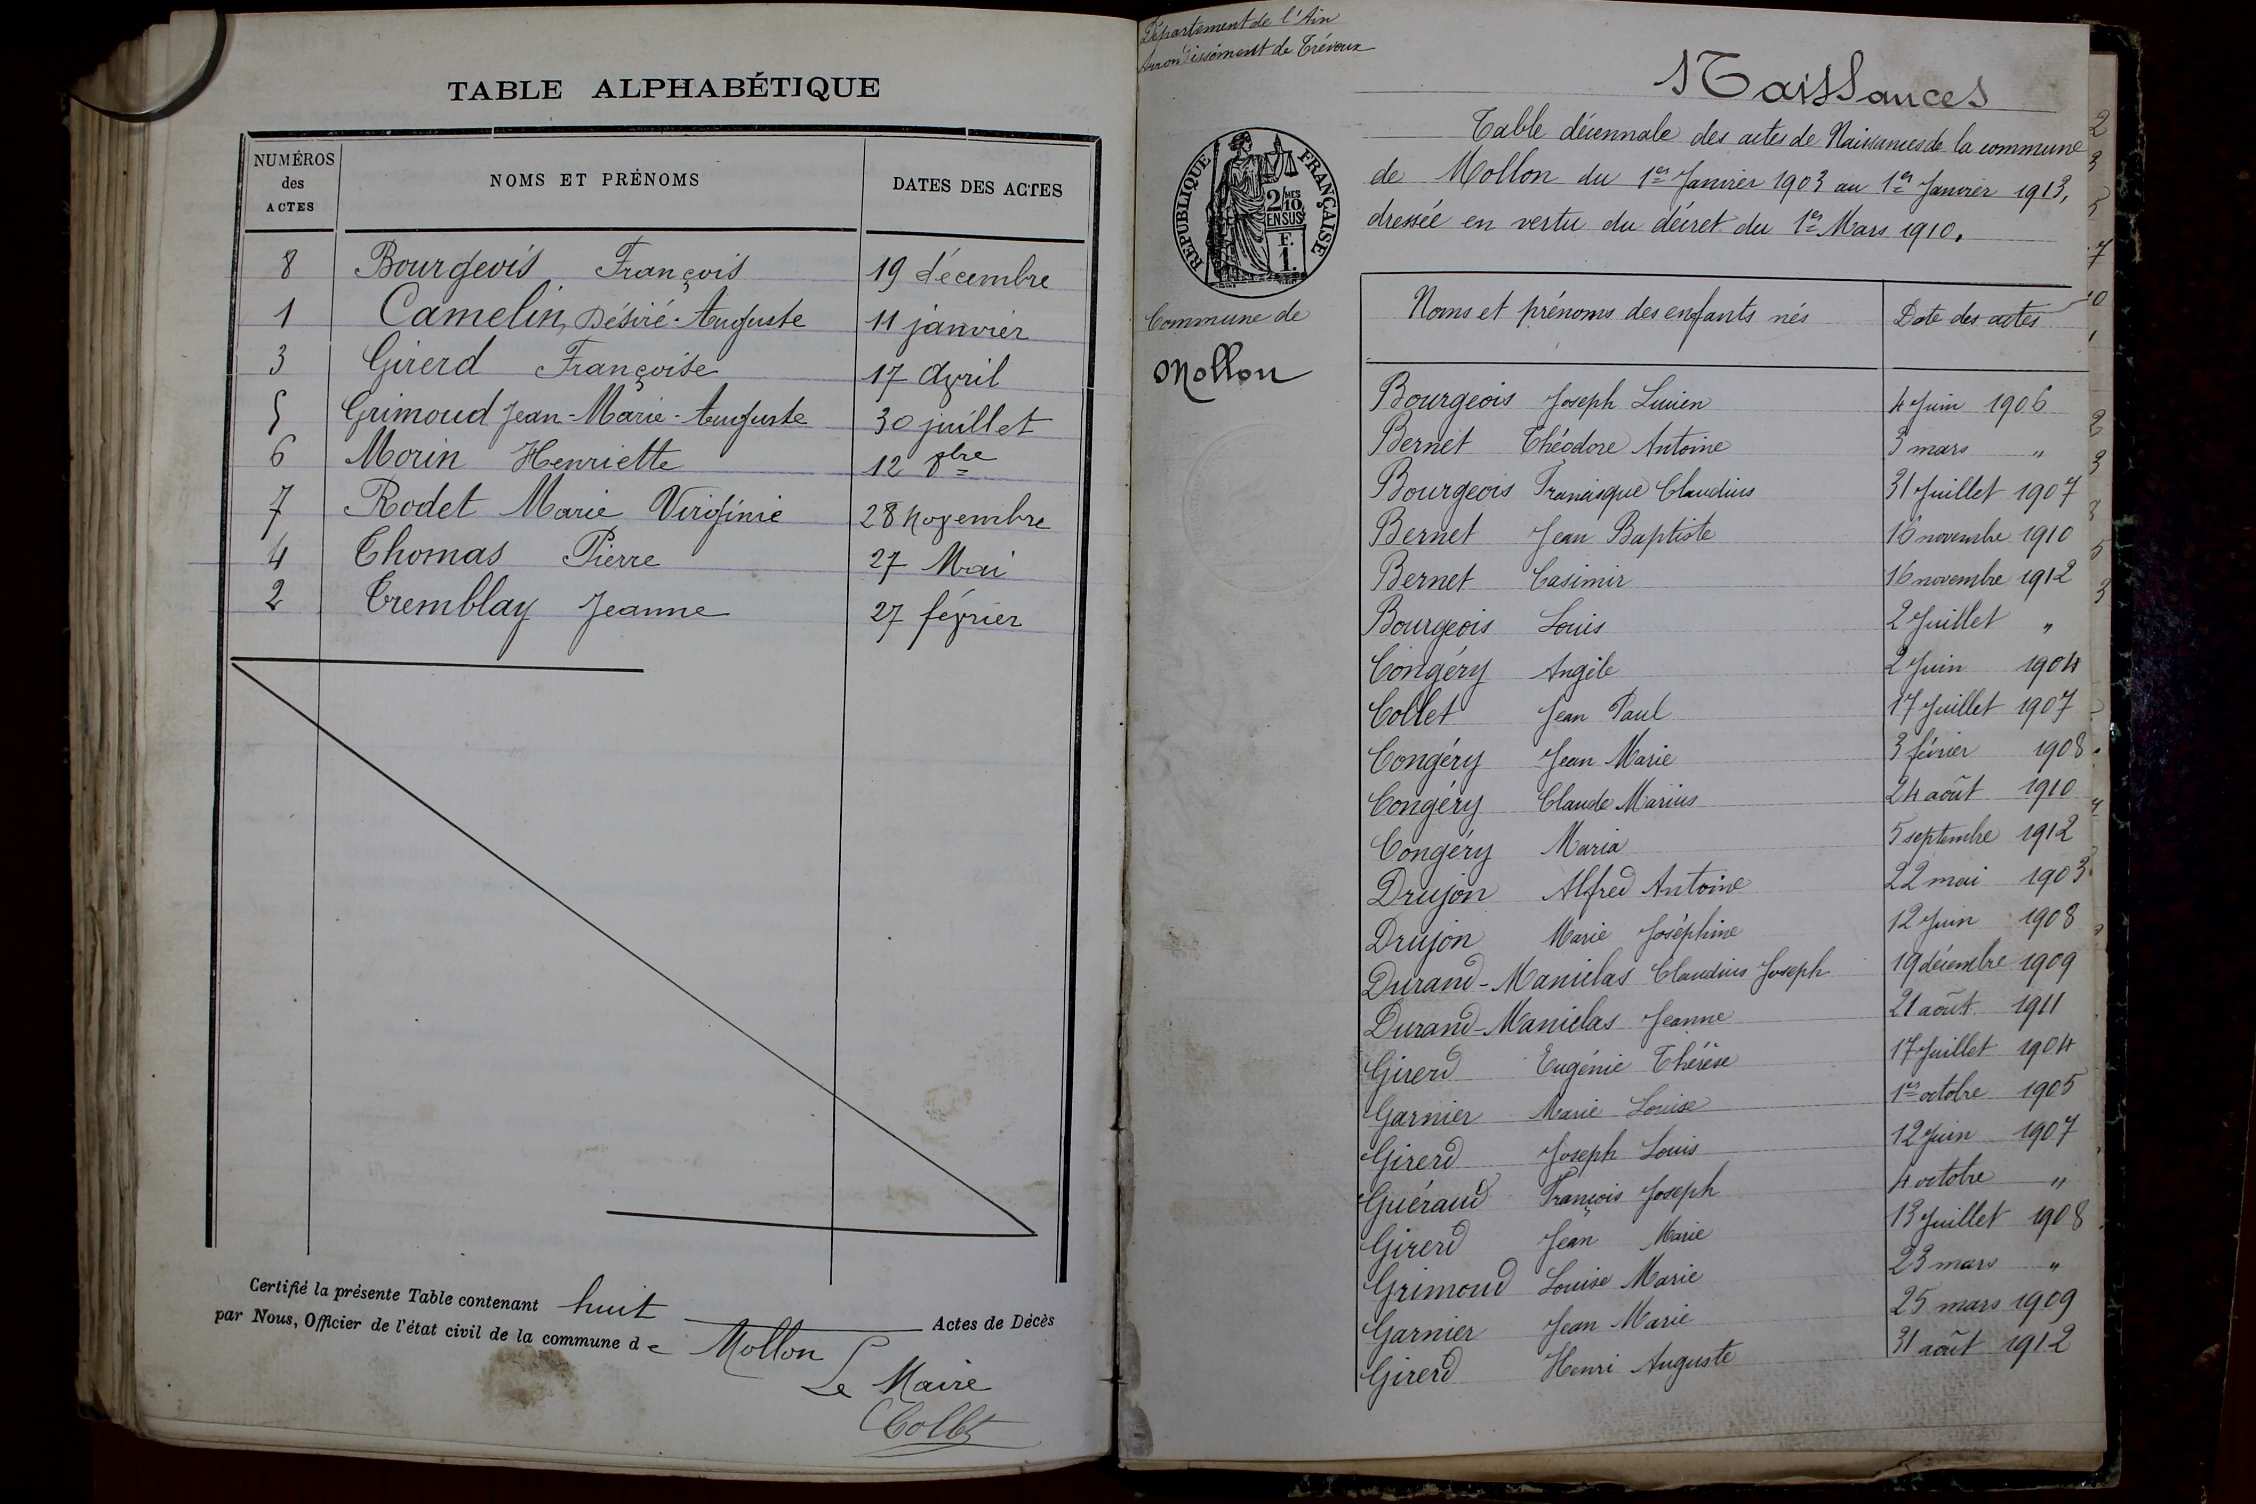 TABLE ALPHABÉTIQUE
NUMÉROS des ACTES NOMS ET PRÉNOMS DATES DES ACTES
8 Bourgeois François 19 décembre
1 Camelin, Désiré-Auguste 11 janvier
3 Girerd Françoise 17 Avril
5 Grimoud Jean-Marie-Auguste 30 juillet
6 Morin Henriette 12 8bre
7 Rodet Marie Virginie 28 Novembre
4 Thomas Pierre 27 Mai
2 Tremblay Jeanne 27 février
Certifié la présente Table contenant huit Actes de Décès
par Nous, Officier de l'état civil de la commune de Mollon
Le Maire
Collet
Département de l'Ain
Arrondissement de Trévoux
Naissances
Table décennale des actes de Naissances de la commune
de Mollon du 1er Janvier 1903 au 1er Janvier 1913,
dressée en vertu du décret du 1er Mars 1910.
RÉPUBLIQUE FRANÇAISE
2/10 MES
EN SUS
F.
1.
Commune de
Mollon
Noms et prénoms des enfants nés Date des actes
Bourgeois Joseph Lucien 4 Juin 1906
Bernet Théodore Antoine 3 mars "
Bourgeois Francisque Claudius 31 Juillet 1907
Bernet Jean Baptiste 16 novembre 1910
Bernet Casimir 16 novembre 1912
Bourgeois Louis 2 Juillet "
Congéry Angèle 2 Juin 1904
Collet Jean Paul 17 Juillet 1907
Congéry Jean Marie 3 février 1908
Congéry Claude Marius 24 août 1910
Congéry Maria 5 septembre 1912
Drujon Alfred Antoine 22 mai 1903
Drujon Marie Joséphine 12 Juin 1908
Durand-Maniclas Claudius Joseph 19 décembre 1909
Durand-Maniclas Jeanne 21 août 1911
Girerd Eugénie Thérèse 17 Juillet 1904
Garnier Marie Louise 1er octobre 1905
Girerd Joseph Louis 12 Juin 1907
Guéraud François Joseph 4 octobre "
Girerd Jean Marie 13 Juillet 1908
Grimoud Louise Marie 23 mars "
Garnier Jean Marie 25 mars 1909
Girerd Henri Auguste 31 août 1912